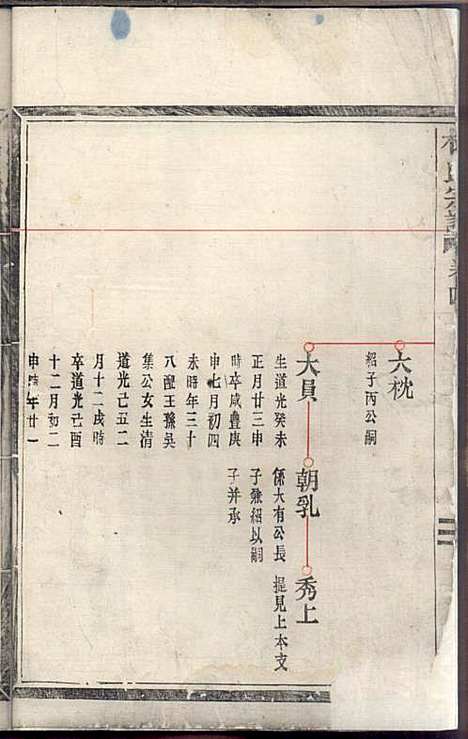 氏宗譜 卷四
六枕
紹子丙公嗣
大員
生道光癸未
正月廿三申
時卒咸豐庚
申七月初四
未時年三十
八配王孫吳
集公女生清
道光己五二
月十二戌時
卒道光己酉
十二月初二
申時年廿一
朝乳
係大有公長
子兼紹以嗣
子并承
秀上
提見上本支